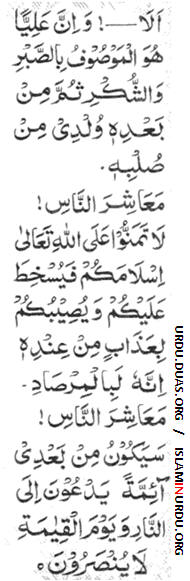 اَلَا—! وَاِنَّ عَلِیًّا
هُوَ الْمَوْصُوْفُ بِالصَّبْرِ
وَالشُّكْرِ ثُمَّ مِنْ
بَعْدِهٖ وُلْدِیْ مِنْ
صُلْبِهٖ.
مَعَاشِرَ النَّاسِ!
لَا تَمَنُّوْا عَلَی اللهِ تَعَالٰی
اِسْلَامَكُمْ فَیَسْخَطَ
عَلَیْكُمْ وَ یُصِیْبُكُمْ
بِعَذَابٍ مِنْ عِنْدِهٖ
اِنَّهٗ لَبِالْمِرْصَادِ.
مَعَاشِرَ النَّاسِ!
سَیَكُوْنُ مِنْ بَعْدِیْ
اَئِمَّةٌ یَدْعُوْنَ اِلَی
النَّارِ وَ یَوْمَ الْقِیٰمَةِ
لَا یُنْصَرُوْنَ.
URDU.DUAS.ORG / ISLAMINURDU.ORG